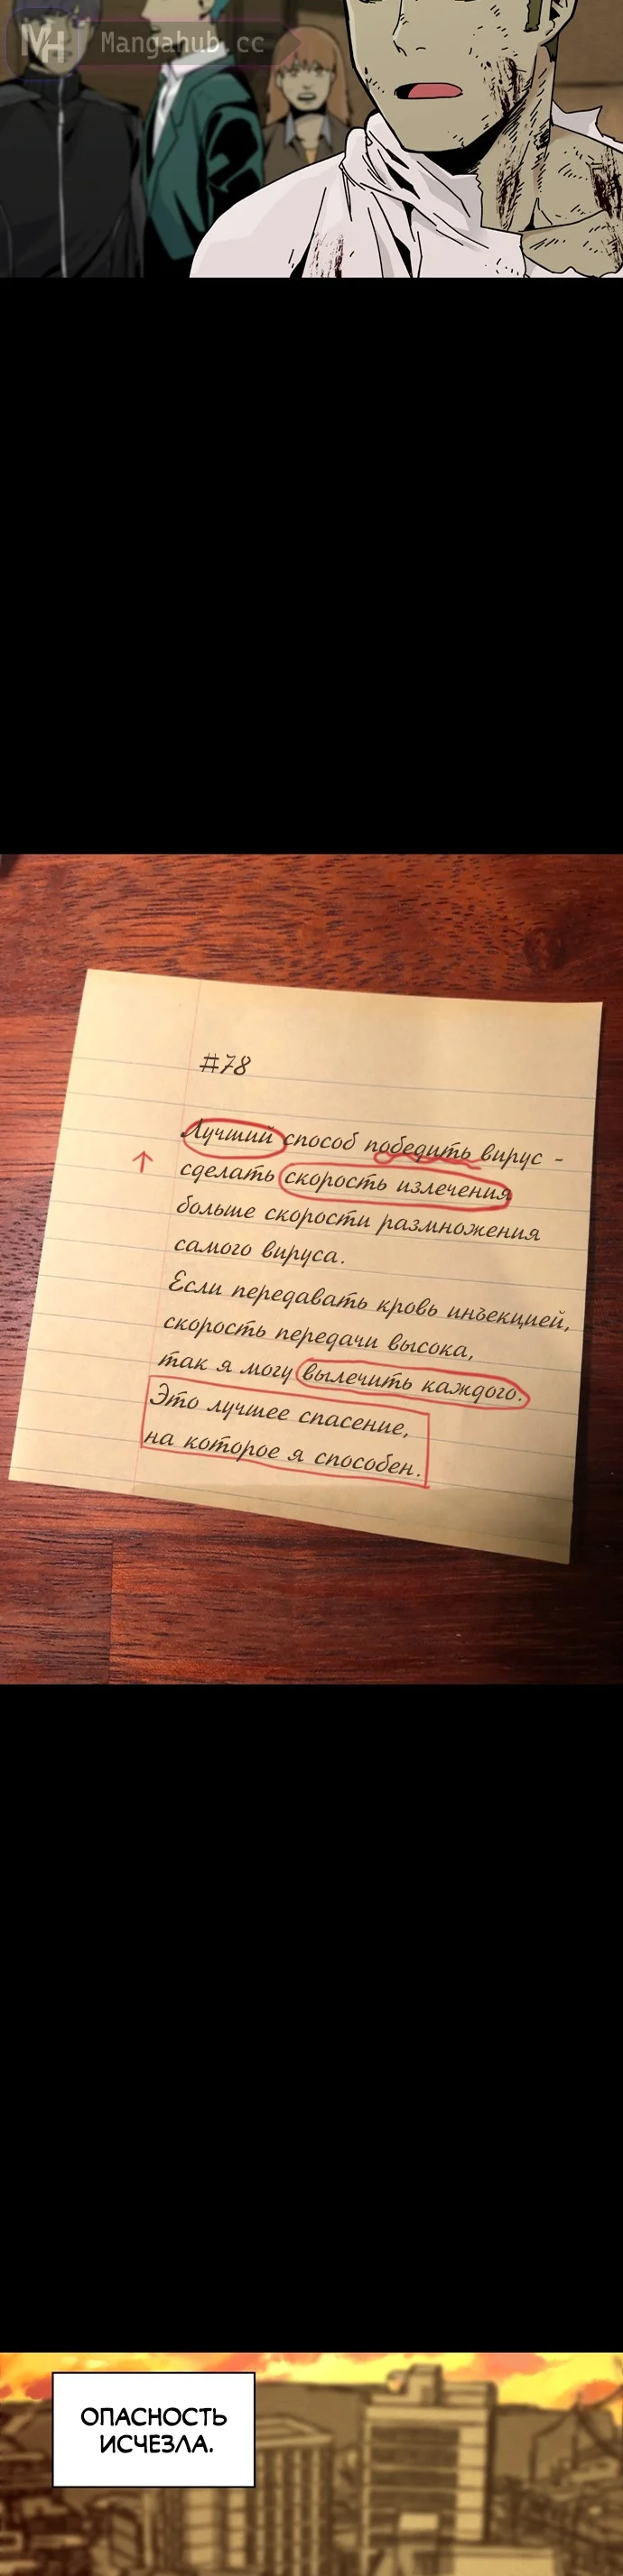 MH Mangahub.cc
#78
Лучший способ победить вирус -
сделать скорость излечения
больше скорости размножения
самого вируса.
Если передавать кровь инъекцией,
скорость передачи высока,
так я могу вылечить каждого.
Это лучшее спасение,
на которое я способен.
ОПАСНОСТЬ
ИСЧЕЗЛА.